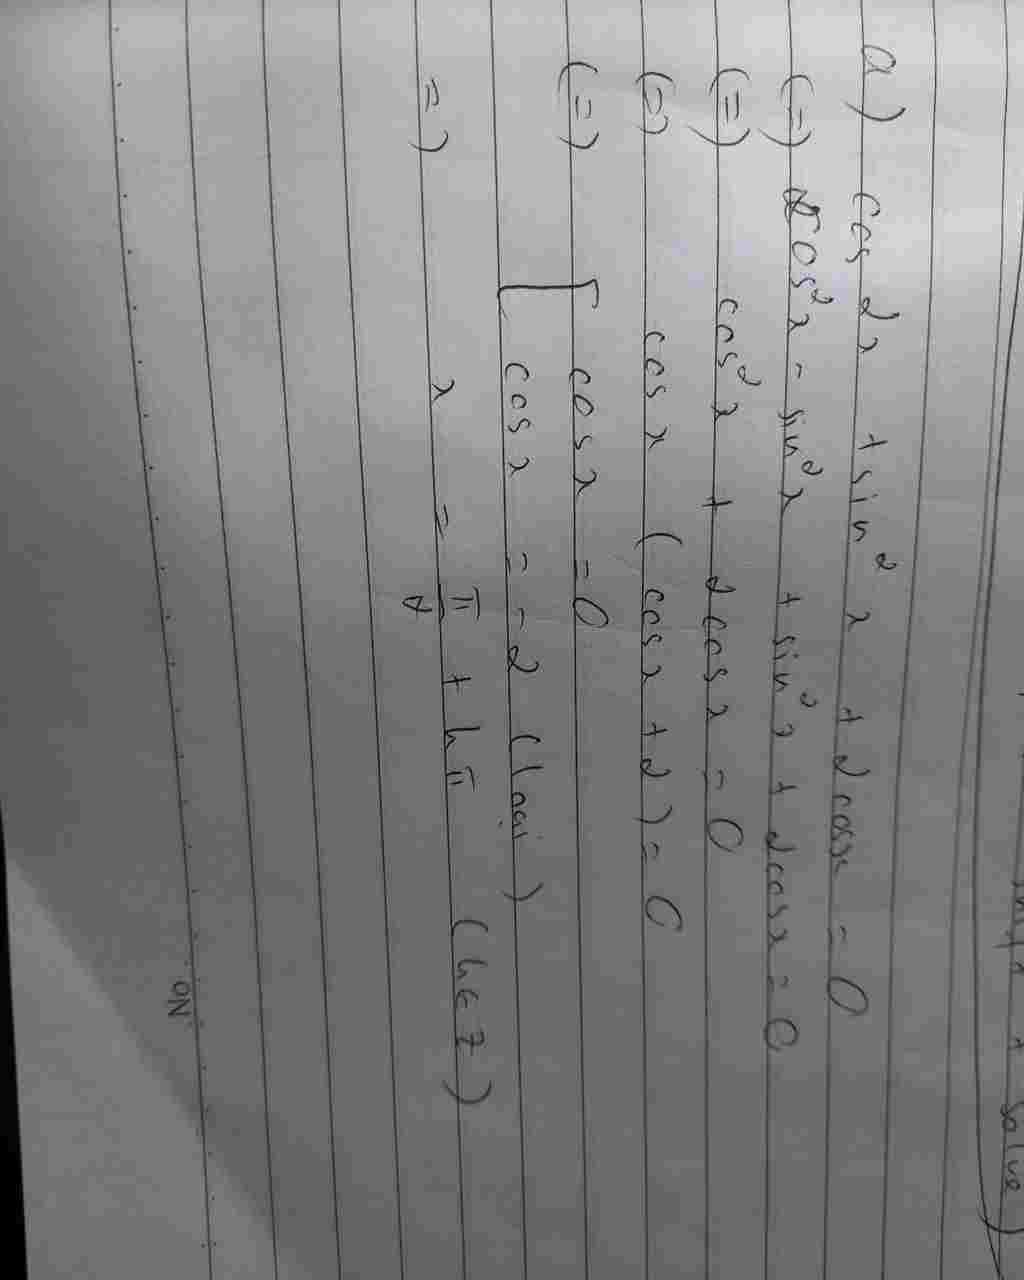 a) cos 2x + sin² x + 2cosx = 0
(=) cos²x - sin²x + sin²x + 2cosx = 0
(=) cos²x + 2cosx = 0
(=) cosx (cosx + 2) = 0
(=) [ cosx = 0
cosx = -2 (loại)
=) x = π/2 + kπ (k ∈ Z)
No
+ solve)